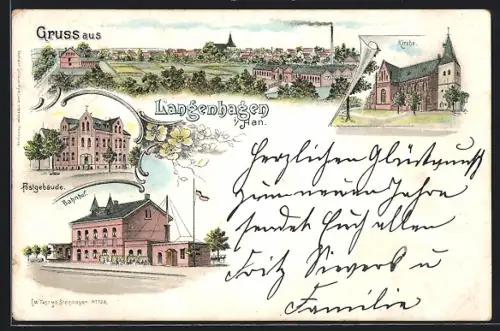 Gruss aus
Kirche.
Langenhagen
i/Han.
Postgebäude.
Bahnhof.
Herzlichen Glückwunsch
zum neuen Jahre
sendet Euch allen
Fritz Sievers u
Familie